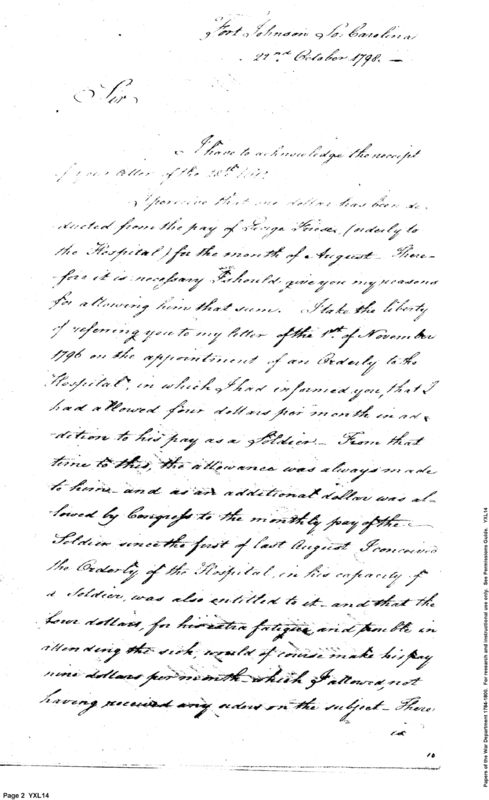 Fort Johnson So. Carolina
22nd October 1798. —
Sir
I have to acknowledge the receipt
of your letter of the 28th
I perceive that one dollar has been de-
ducted from the pay of George (orderly to
the Hospital) for the month of August — There-
fore it is necessary I should give you my reasons
for allowing him that sum. I take the liberty
of referring you to my letter of the 1st. of November
1796 on the appointment of an Orderly to the
Hospital, in which I had informed you, that I
had allowed four dollars per month in ad-
dition to his pay as a Soldier — From that
time to this, the allowance was always made
to him — and as an additional dollar was al-
lowed by Congress to the monthly pay of the
Soldier since the first of last August I conceived
the Orderly of the Hospital, in his capacity of
a Soldier, was also entitled to it — and that the
four dollars, for his extra fatigue and trouble in
attending the sick, would of course make his pay
nine dollars per month — which I allowed, not
having received any orders on the subject — There
is
10
Page 2 YXL14
Papers of the War Department 1784-1800. For research and instructional use only. See Permissions Guide. YXL14